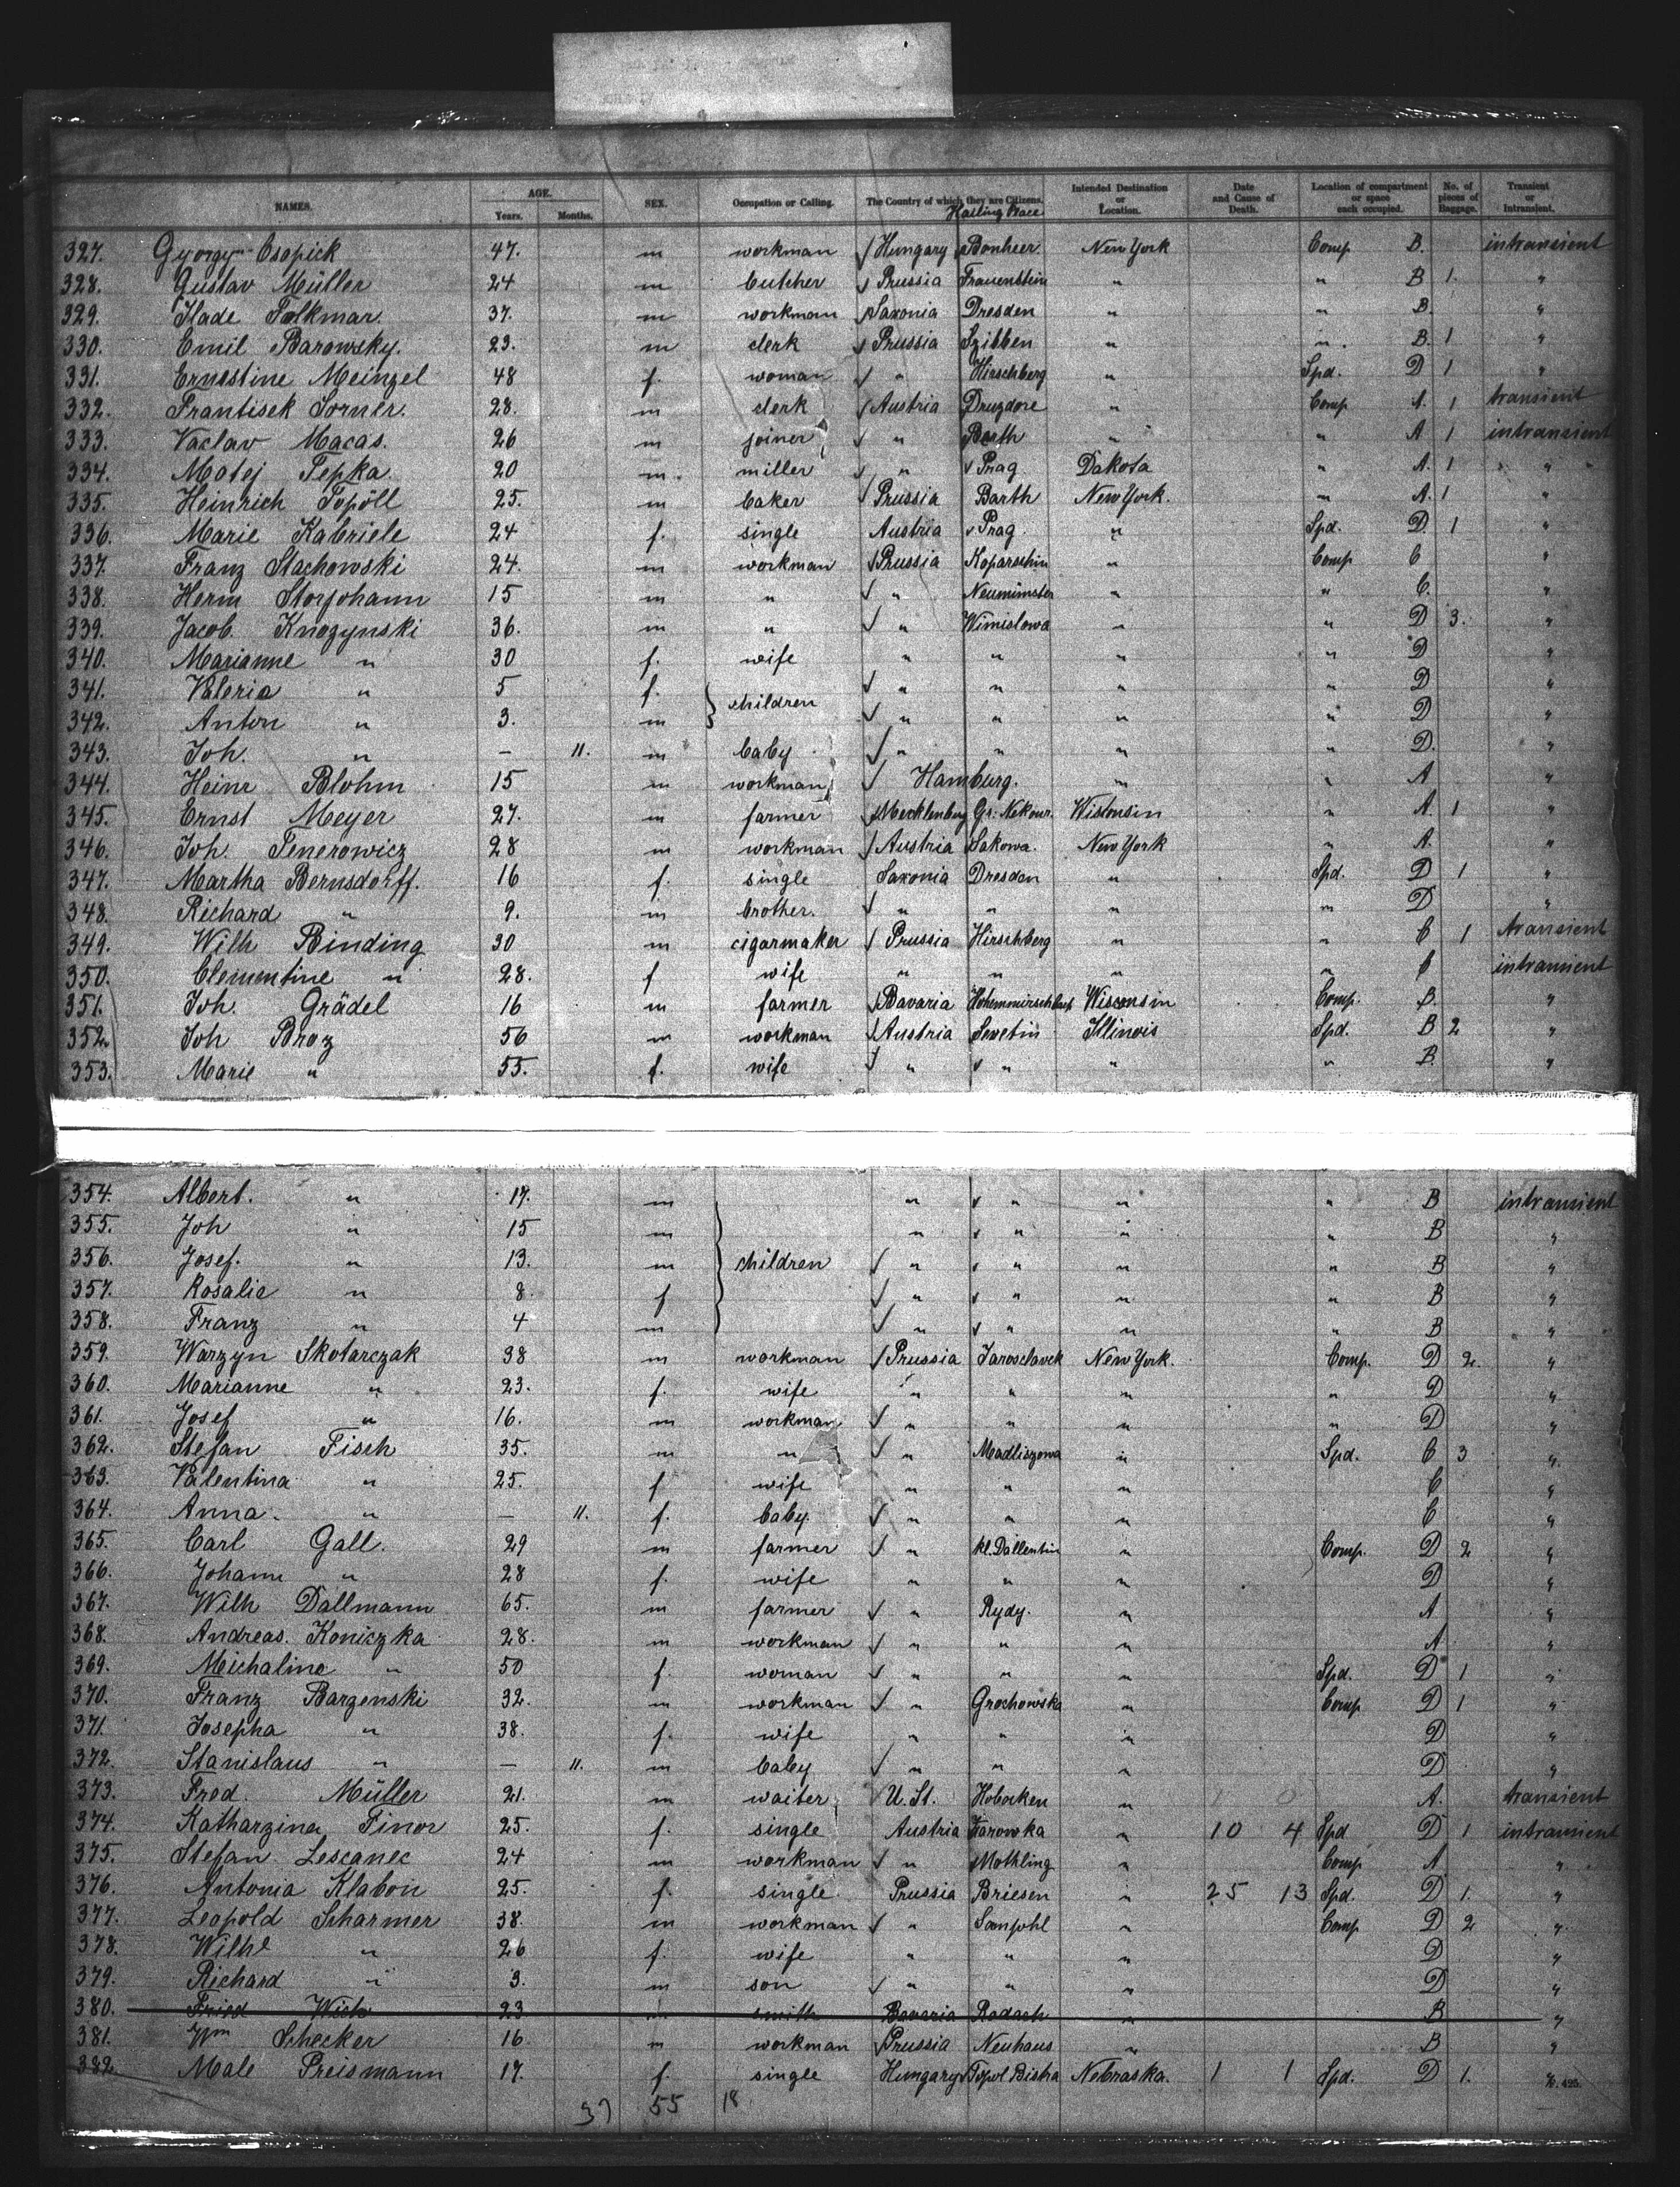 NAMES. AGE. Years. Months. SEX. Occupation or Calling. The Country of which they are Citizens. Hailing Place Intended Destination or Location. Date and Cause of Death. Location of compartment or space each occupied. No. of pieces of Baggage. Transient or Intransient.
327. Gyorgy Csopick 47. m workman Hungary Bonheer New York Comp B. intransient
328. Gustav Müller 24 m butcher Prussia Frauenstein " " B 1. "
329. Ilade Folkmar 37. m workman Saxonia Dresden " " B. "
330. Emil Barowsky. 23. m clerk Prussia Szibben " " B. 1 "
331. Ernestine Meinzel 48 f. woman " Hirschberg " Spd. D 1 "
332. Frantisek Sorner. 28. m clerk Austria Druzdore " Comp A. 1 transient
333. Vaclav Macas. 26 m joiner " Barth " " A 1 intransient
334. Matej Tepka. 20 m. miller " Prag Dakota " A. 1 "
335. Heinrich Popöll 25. m baker Prussia Barth New York. " A. 1 "
336. Marie Kabriele 24 f. single Austria Prag " Spd. D. 1 "
337. Franz Stachowski 24. m workman Prussia Koparschin " Comp C "
338. Herm Storjohann 15 m " " Neumünster " " C. "
339. Jacob Knozynski 36. m " " Wimislowa " " D 3. "
340. Marianne " 30 f. wife " " " " D "
341. Valeria " 5 f. children " " " " D "
342. Anton " 3. m " " " " D "
343. Joh. " — 11. m baby " " " " D. "
344. Heinr Blohm 15 m workman Hamburg. " " A "
345. Ernst Meyer 27. m farmer Mecklenburg Gr. Nekour. Wisconsin " A. 1 "
346. Joh. Tenerowicz 28 m workman Austria Sakowa. New York " A. "
347. Martha Bernsdorff. 16 f. single Saxonia Dresden " Spd. D 1 "
348. Richard " 9. m brother. " " " " D "
349. Wilh Binding 30 m cigarmaker Prussia Hirschberg " " C 1 transient
350. Clementine " 28. f wife " " " " C intransient
351. Joh. Grädel 16 m farmer Bavaria Wisconsin Comp. B. "
352. Joh Broz 56 m workman Austria Sevetin Illinois Spd. B 2 "
353. Marie " 55. f. wife " " " " B. "
354. Albert. " 17. m " " " " B intransient
355. Joh " 15 m " " " " B "
356. Josef. " 13. m children " " " " B "
357. Rosalie " 8. f " " " " B "
358. Franz " 4 m " " " " B "
359. Warzyn Skotarczak 38 m workman Prussia Jaroschavek New York. Comp. D 2. "
360. Marianne " 23. f. wife " " " " D "
361. Josef " 16. m workman " " " " D "
362. Stefan Fisch 35. m " " Madliszowa " Spd. C 3 "
363. Valentina " 25. f wife " " " C "
364. Anna. " — 11. f. baby. " " " C "
365. Carl Gall. 29 m farmer " kl. Dallentin " Comp. D 2 "
366. Johann " 28 f. wife " " " D "
367. Wilh Dallmann 65. m farmer " Rydy. " A "
368. Andreas. Koniczka 28. m workman " " " A "
369. Michaline " 50 f. woman " " " Spd. D 1 "
370. Franz Barzenski 32. m workman " Grochowska " Comp D 1 "
371. Josepha " 38. f. wife " " " D "
372. Stanislaus " — 11. m baby " " " D "
373. Fred. Müller 21. m waiter U. St. Hoboken " A. transient
374. Katharzina Finor 25. f. single Austria Zarowka " 10 4 Spd D 1 intransient
375. Stefan Lescanec 24 m workman " Mothling " Comp A "
376. Antonia Klabon 25. f. single. Prussia Briesen " 25 13 Spd. D 1. "
377. Leopold Scharmer 38. m workman " Sampohl " Comp D 2 "
378. Wilhe " 26 f. wife " " " D "
379. Richard " 3. m son " " " D "
380. Fried Wich 23 m smith Bavaria Rodach " B "
381. Wm Schecker 16 m workman Prussia Neuhaus " B "
382. Male Preismann 17. f. single Hungary Topol Bistra Nebraska. 1 1 Spd. D 1. "
37 55 18